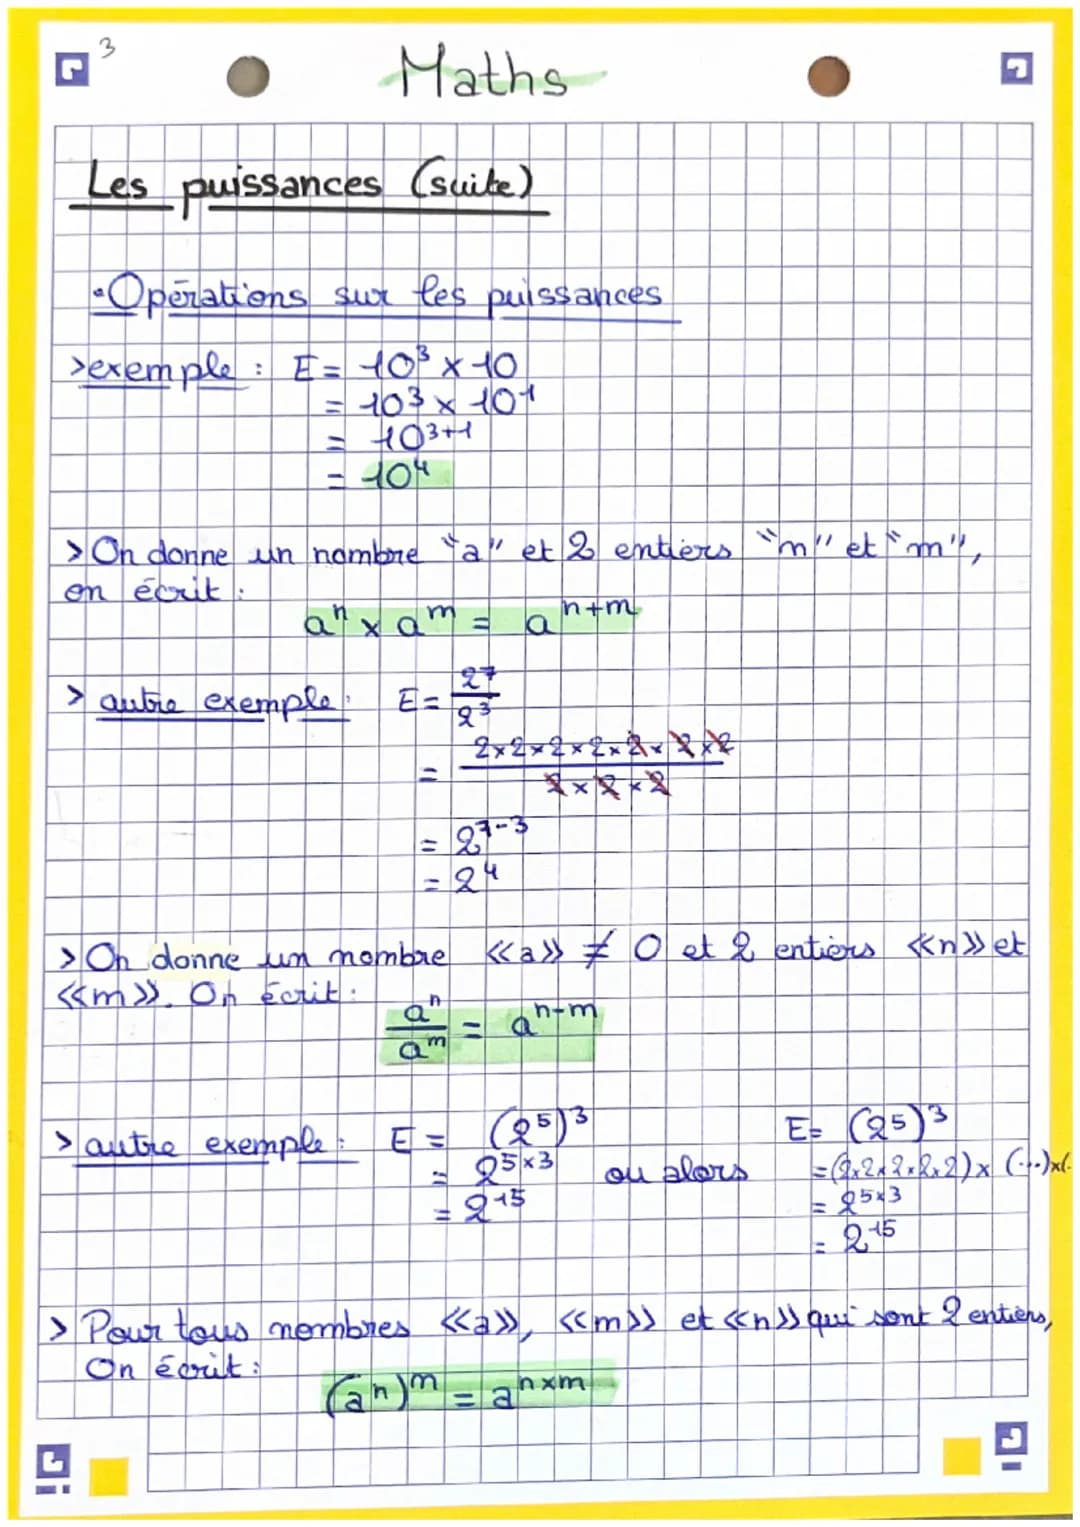 3
Maths
Les puissances (suite)
•Opérations sur les puissances
>exemple : E = 10³ x 10
= 10³ x 10¹
= 10³⁺¹
= 10⁴
> On donne un nombre "a" et 2 entiers "n" et "m",
on écrit :
aⁿ x aᵐ = aⁿ⁺ᵐ
> autre exemple : E = 2⁷/2³
= 2x2x2x2x2x2x2 / 2x2x2
= 2⁷⁻³
= 2⁴
> On donne un nombre <<a>> ≠ 0 et 2 entiers <<n>> et
<<m>>. On écrit :
aⁿ/aᵐ = aⁿ⁻ᵐ
> autre exemple : E = (2⁵)³ ou alors E= (2⁵)³
= 2⁵ˣ³ =(2x2x2x2x2)x (...)x(.
= 2¹⁵ = 2⁵ˣ³
= 2¹⁵
> Pour tous nombres <<a>>, <<m>> et <<n>> qui sont 2 entiers,
On écrit :
(aⁿ)ᵐ = aⁿˣᵐ